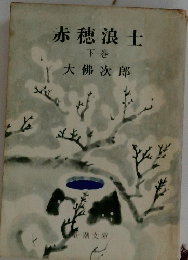 赤穂浪士
下巻
大佛次郎
新潮文庫